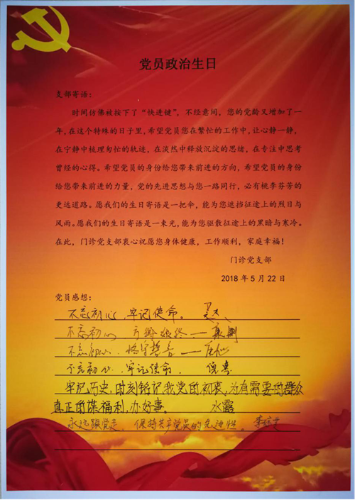 党员政治生日
支部寄语：
时间仿佛被按下了“快进键”，不经意间，您的党龄又增加了一
年，在这个特殊的日子里，希望党员您在繁忙的工作中，让心静一静，
在宁静中梳理匆忙的轨迹，在淡然中释放沉淀的思绪，在专注中思考
曾经的心得。希望党员的身份给您带来前进的方向，希望党员的身份
给您带来前进的力量，党的先进思想与您一路同行，必有桃李芬芳的
更远道路。愿我们的生日寄语是一把伞，能为您遮挡征途上的烈日与
风雨。愿我们的生日寄语是一束光，能为您驱散征途上的黑暗与寒冷。
在此，门诊党支部衷心祝愿您身体健康，工作顺利，家庭幸福！
门诊党支部
2018 年 5 月 22 日
党员感想：
不忘初心，牢记使命。
不忘初心，方得始终——
不忘初心，
不忘初心，牢记使命。
牢记历史，时刻铭记我党团初衷，为有需要的群众
真正团谋福利，办好事。
永远跟党走，保持共产党员的先进性。